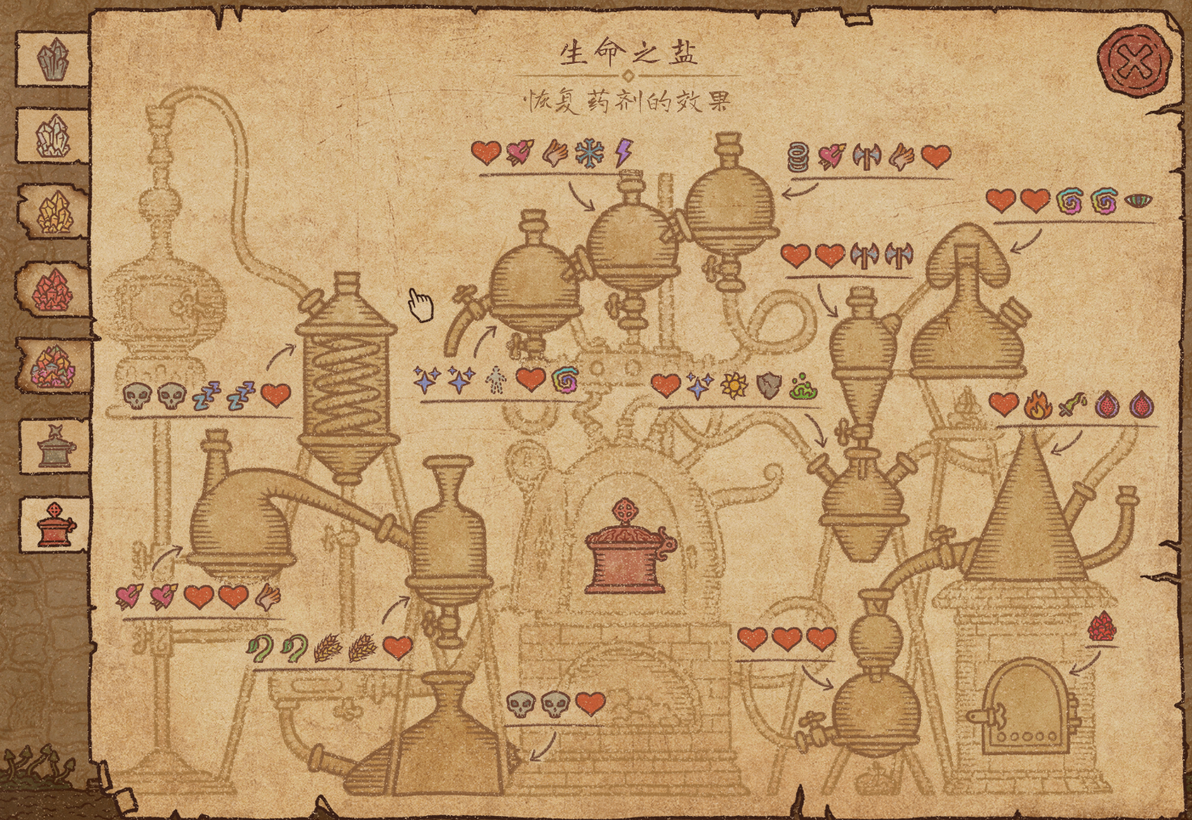 生命之盐
恢复药剂的效果